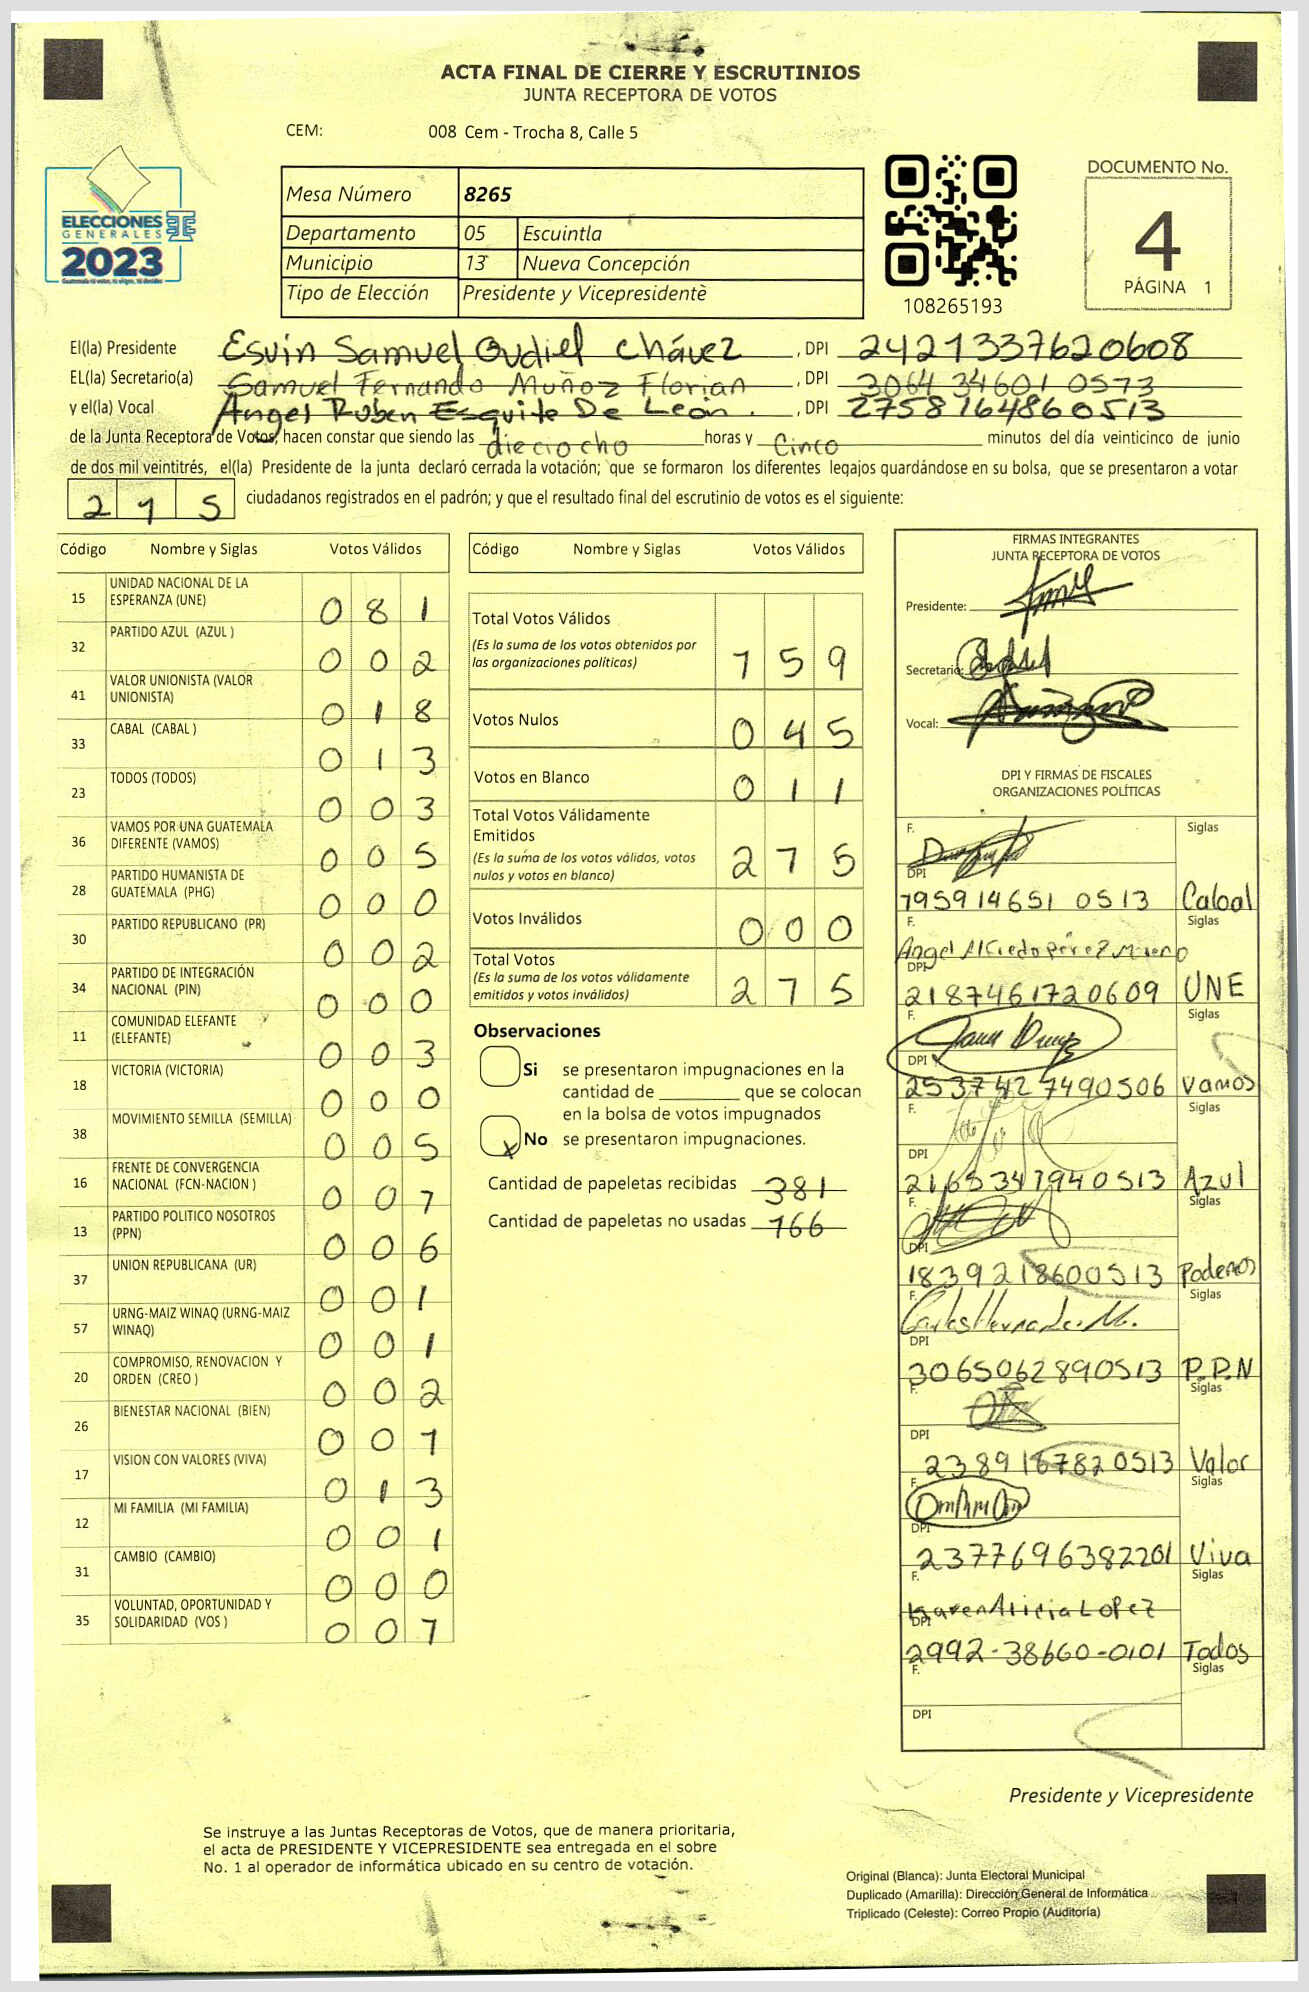 ACTA FINAL DE CIERRE Y ESCRUTINIOS
JUNTA RECEPTORA DE VOTOS
CEM: 008 Cem - Trocha 8, Calle 5
ELECCIONES
GENERALES
2023
Mesa Número 8265
Departamento 05 Escuintla
Municipio 13 Nueva Concepción
Tipo de Elección Presidente y Vicepresidente
108265193
DOCUMENTO No.
4
PÁGINA 1
El(la) Presidente Esvin Samuel Gudiel Chávez, DPI 2421337620608
EL(la) Secretario(a) Samuel Fernando Muñoz Florian, DPI 3064346010573
y el(la) Vocal Angel Ruben Esquite De León., DPI 2758164860513
de la Junta Receptora de Votos, hacen constar que siendo las dieciocho horas y Cinco minutos del día veinticinco de junio
de dos mil veintitrés, el(la) Presidente de la junta declaró cerrada la votación; que se formaron los diferentes legajos guardándose en su bolsa, que se presentaron a votar
215 ciudadanos registrados en el padrón; y que el resultado final del escrutinio de votos es el siguiente:
Código Nombre y Siglas Votos Válidos
15 UNIDAD NACIONAL DE LA ESPERANZA (UNE) 081
32 PARTIDO AZUL (AZUL ) 002
41 VALOR UNIONISTA (VALOR UNIONISTA) 018
33 CABAL (CABAL ) 013
23 TODOS (TODOS) 003
36 VAMOS POR UNA GUATEMALA DIFERENTE (VAMOS) 005
28 PARTIDO HUMANISTA DE GUATEMALA (PHG) 000
30 PARTIDO REPUBLICANO (PR) 002
34 PARTIDO DE INTEGRACIÓN NACIONAL (PIN) 000
11 COMUNIDAD ELEFANTE (ELEFANTE) 003
18 VICTORIA (VICTORIA) 000
38 MOVIMIENTO SEMILLA (SEMILLA) 005
16 FRENTE DE CONVERGENCIA NACIONAL (FCN-NACION ) 007
13 PARTIDO POLITICO NOSOTROS (PPN) 006
37 UNION REPUBLICANA (UR) 001
57 URNG-MAIZ WINAQ (URNG-MAIZ WINAQ) 001
20 COMPROMISO, RENOVACION Y ORDEN (CREO ) 002
26 BIENESTAR NACIONAL (BIEN) 001
17 VISION CON VALORES (VIVA) 013
12 MI FAMILIA (MI FAMILIA) 001
31 CAMBIO (CAMBIO) 000
35 VOLUNTAD, OPORTUNIDAD Y SOLIDARIDAD (VOS ) 001
Código Nombre y Siglas Votos Válidos
Total Votos Válidos 159
(Es la suma de los votos obtenidos por
las organizaciones políticas)
Votos Nulos 045
Votos en Blanco 011
Total Votos Válidamente
Emitidos 215
(Es la suma de los votos válidos, votos
nulos y votos en blanco)
Votos Inválidos 000
Total Votos 215
(Es la suma de los votos válidamente
emitidos y votos inválidos)
Observaciones
Si se presentaron impugnaciones en la
cantidad de ________ que se colocan
en la bolsa de votos impugnados
x No se presentaron impugnaciones.
Cantidad de papeletas recibidas 381
Cantidad de papeletas no usadas 166
FIRMAS INTEGRANTES
JUNTA RECEPTORA DE VOTOS
Presidente:
Secretario:
Vocal:
DPI Y FIRMAS DE FISCALES
ORGANIZACIONES POLÍTICAS
F. Siglas
DPI
1959146510513 Cabal
F. Siglas
Angel Alfredo Pérez
DPI
2187461720609 UNE
F. Siglas
DPI
2537427490506 Vamos
F. Siglas
DPI
2165347940513 Azul
F. Siglas
DPI
1839218600513 Podemos
F. Siglas
Carlos Hernandez M.
DPI
3065062890513 P.P.N
F. Siglas
DPI
2389187820513 Valor
F. Siglas
DPI
2377696382201 Viva
F. Siglas
Karen Alicia Lopez
DPI
2992-38660-0101 Todos
F. Siglas
DPI
Presidente y Vicepresidente
Se instruye a las Juntas Receptoras de Votos, que de manera prioritaria,
el acta de PRESIDENTE Y VICEPRESIDENTE sea entregada en el sobre
No. 1 al operador de informática ubicado en su centro de votación.
Original (Blanca): Junta Electoral Municipal
Duplicado (Amarilla): Dirección General de Informática
Triplicado (Celeste): Correo Propio (Auditoría)